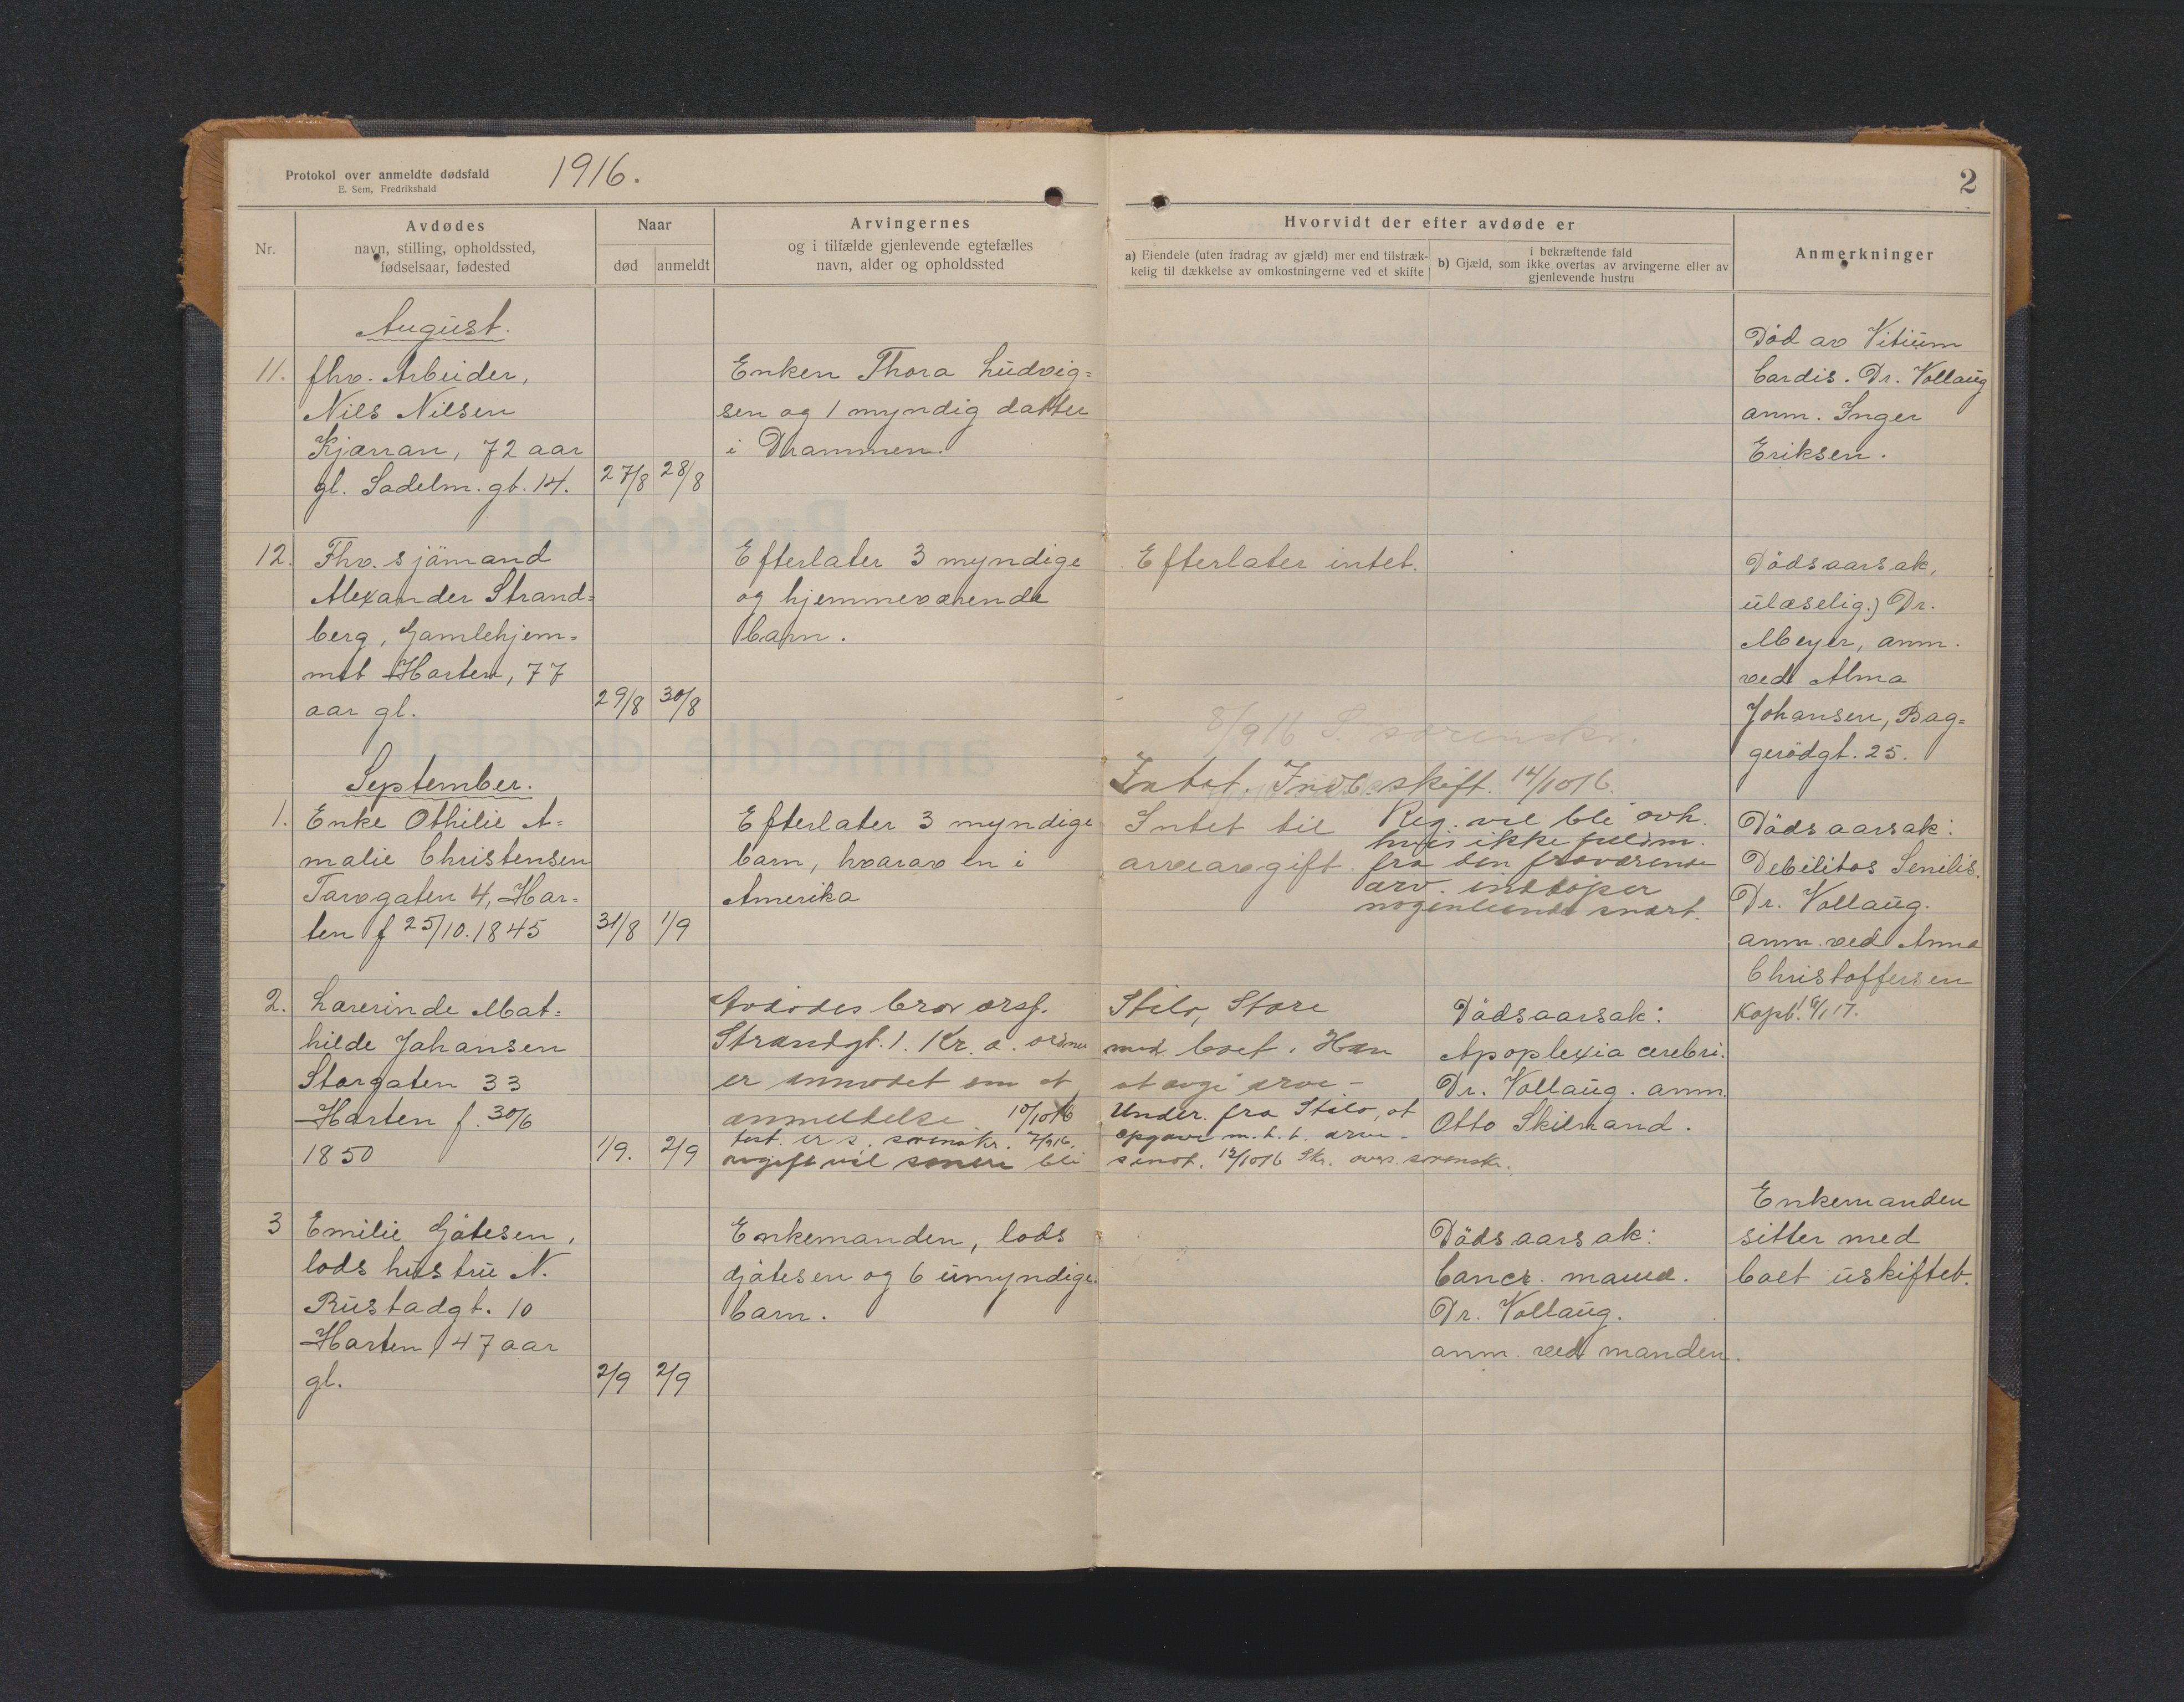 Protokol over anmeldte dødsfald
E. Sem, Fredrikshald
1916.
2
Nr.
Avdødes
navn, stilling, opholdssted,
fødselsaar, fødested
Naar
død
anmeldt
Arvingernes
og i tilfælde gjenlevende egtefælles
navn, alder og opholdssted
Hvorvidt der efter avdøde er
a) Eiendele (uten fradrag av gjæld) mer end tilstræk-
kelig til dækkelse av omkostningerne ved et skifte
i bekræftende fald
b) Gjæld, som ikke overtas av arvingerne eller av
gjenlevende hustru
Anmerkninger
August.
11.
fhv. Arbeider,
Nils Nilsen
Kjærran, 72 aar
gl. Sadelm. gt. 14.
27/8
28/8
Enken Thora Ludvig=
sen og 1 myndig datter
i Drammen.
Død av Vitium
Cardis. Dr. Vollaug
anm. Inger
Eriksen.
12.
Fhv. sjömand
Alexander Strand=
berg, Gamlehjem=
met Horten, 77
aar gl.
29/8
30/8
Efterlater 3 myndige
og hjemmeværende
barn.
Efterlater intet.
Dödsaarsak,
ulæselig.) Dr.
Meyer, anm.
ved Alma
Johansen, Bag=
gerödgt. 25.
8/916 S. sorenskr.
September.
1.
Enke Othilie A=
malie Christensen
Torvgaten 4, Hor=
ten f 25/10. 1845
31/8
1/9
Efterlater 3 myndige
barn, hvorav en i
Amerika
Intet. Indb. skift. 14/1016.
Intet til
arveavgift.
Reg. vil bli avh.
hvis ikke fuldm.
fra den fraværende
arv. indløper
nogenlunde snart.
Dödsaarsak:
Debilitas Senilis.
Dr. Vollaug.
anm. ved Anna
Christoffersen
2.
Lærerinde Mat=
hilde Johansen
Storgaten 33
Horten f. 30/6
1850
1/9.
2/9
Avdødes bror orsf.
Strandgt. 1. Kr. a. ordner
er anmodet om at
anmeldelse 10/1016
test. er s. sorenskr. 7/916.
avgift vil senere bli
Stilo, Store
med boet. Han
at avgi arve-
Under. fra Stilo, at
opgave m.h.t. arve-
senot. 12/1016 Skr. overs. sorenskr.
Dödsaarsak:
Apoplexia cerebri.
Dr. Vollaug. anm.
Otto Skilmand.
3
Emilie Götesen,
lods hustru N.
Rustadgt. 10
Horten, 47 aar
gl.
2/9
2/9
Enkemanden, lods
Götesen og 6 umyndige
barn.
Dödsaarsak:
Cancr. mama.
Dr. Vollaug.
anm. ved manden.
Enkemanden
sitter med
boet uskiftet.